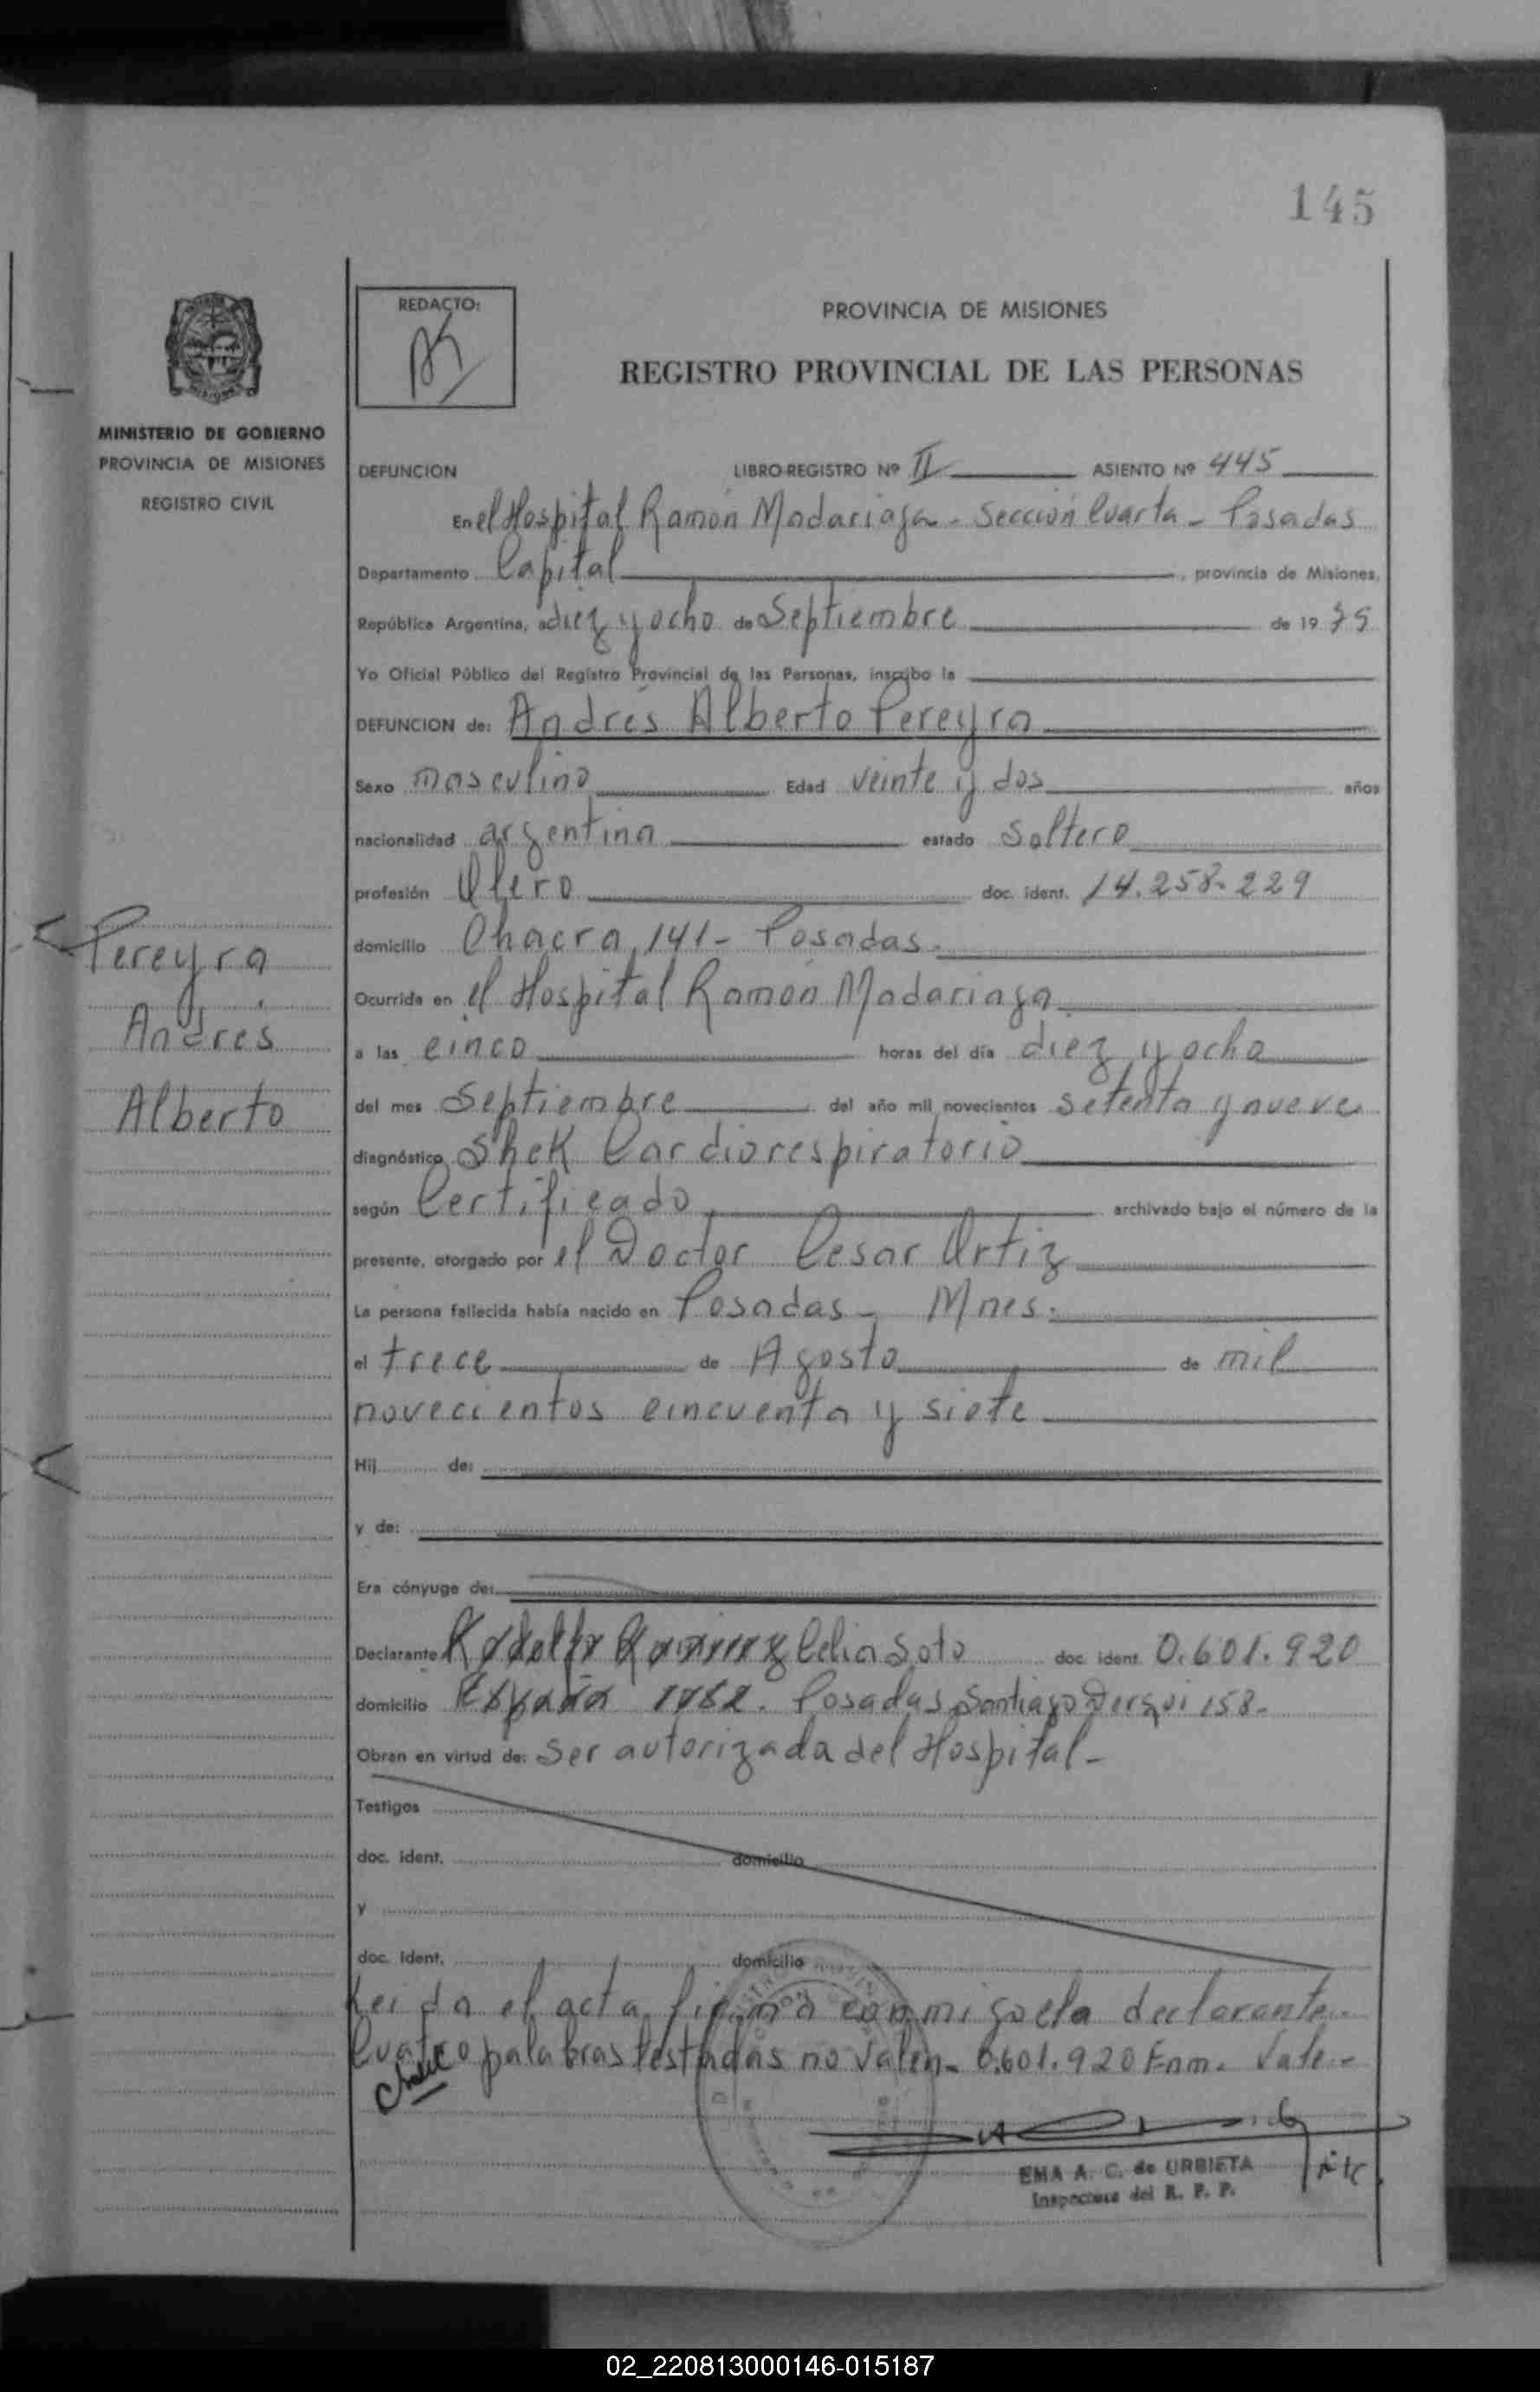 145
REDACTO:
PROVINCIA DE MISIONES
REGISTRO PROVINCIAL DE LAS PERSONAS
MINISTERIO DE GOBIERNO
PROVINCIA DE MISIONES
REGISTRO CIVIL
DEFUNCION LIBRO-REGISTRO Nº II ASIENTO Nº 445
En el Hospital Ramón Madariaga - Sección Cuarta - Posadas
Departamento Capital, provincia de Misiones,
República Argentina, a diez y ocho de Septiembre de 1979
Yo Oficial Público del Registro Provincial de las Personas, inscribo la
DEFUNCION de: Andrés Alberto Pereyra
Sexo masculino Edad veinte y dos años
nacionalidad argentina estado Soltero
profesión Olero doc. ident. 14.258.229
domicilio Chacra 141 - Posadas.
Ocurrida en el Hospital Ramón Madariaga
a las cinco horas del día diez y ocho
del mes Septiembre del año mil novecientos setenta y nueve
diagnóstico Shok Cardiorespiratorio
según Certificado archivado bajo el número de la
presente, otorgado por el Doctor Cesar Ortiz
La persona fallecida había nacido en Posadas - Mnes.
el trece de Agosto de mil
novecientos cincuenta y siete
Hij de:
y de:
Era cónyuge de:
Declarante Rodolfo Ramirez Celia Soto doc. ident. 0.601.920
domicilio España Posadas Santiago Derqui 158.
Obran en virtud de: Ser autorizada del Hospital -
Testigos
doc. ident. domicilio
y
doc. ident. domicilio
Leida el acta, firma conmigo la declarante.
Cuatro palabras testadas no valen - 0.601.920 Enm. Vale -
EMA A. C. de URBIETA
Inspectora del R. P. P.
Pereyra
Andrés
Alberto
02_220813000146-015187